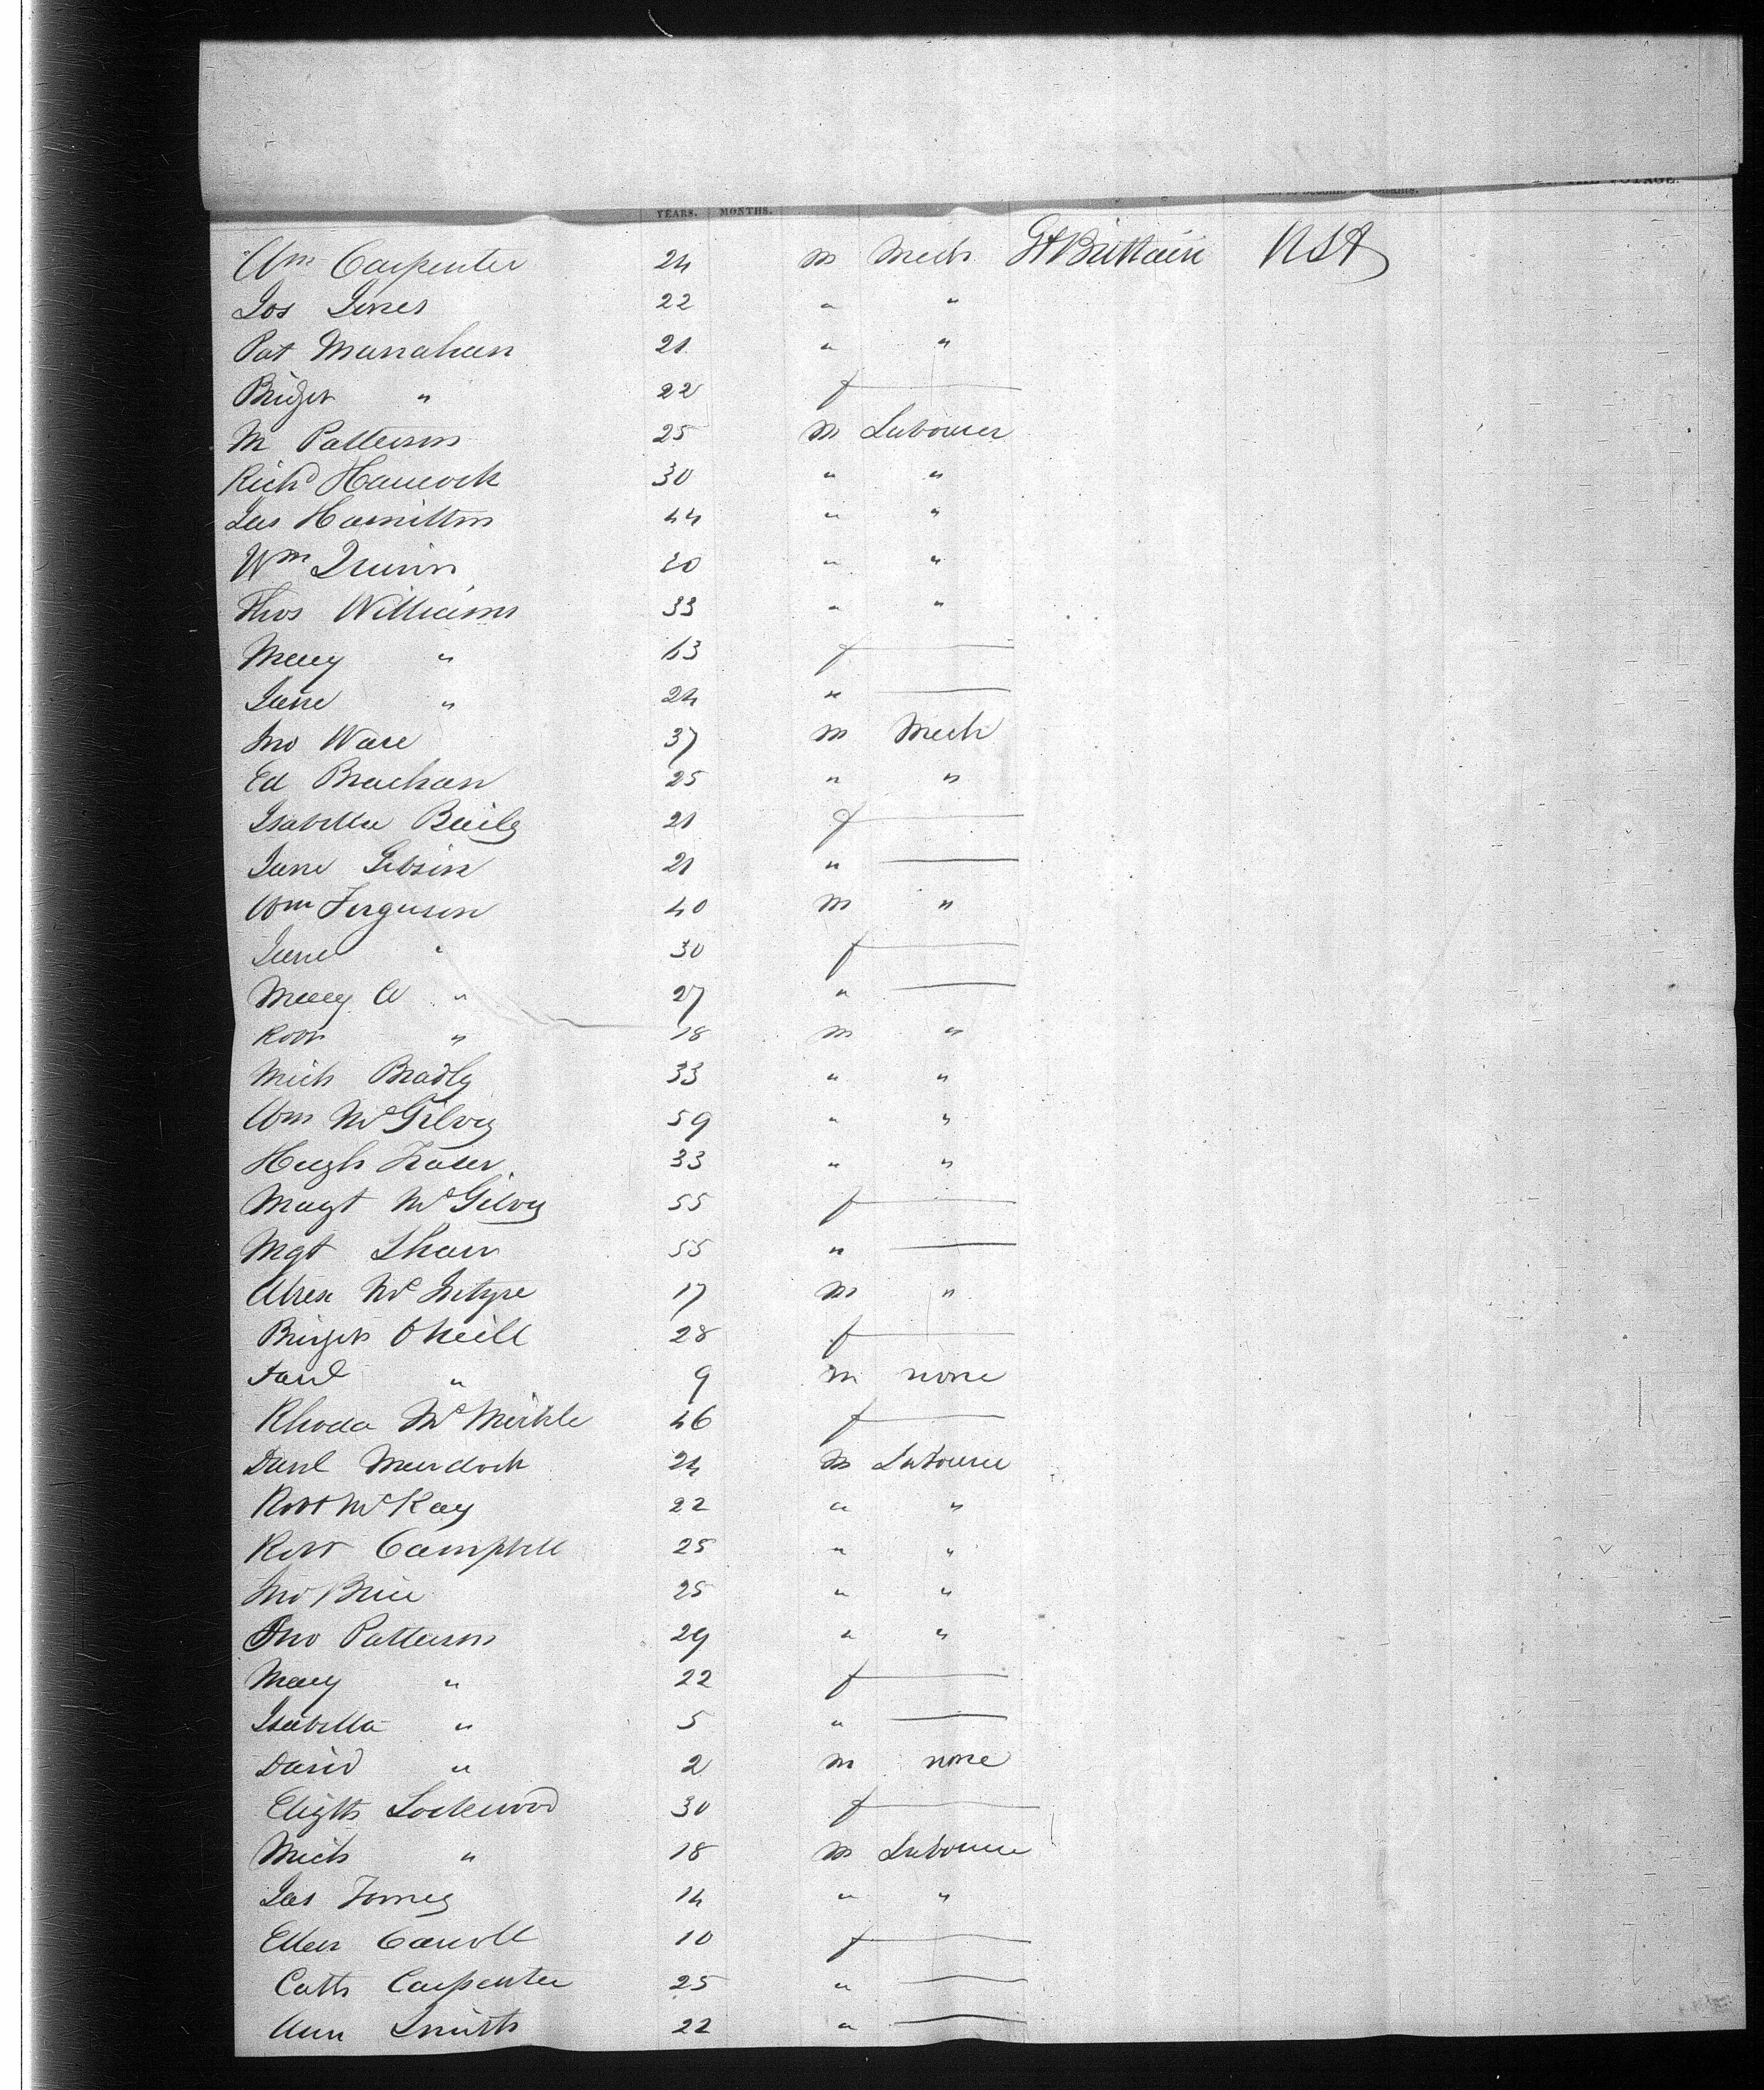 YEARS. MONTHS. VOYAGE.
Wm Carpenter 24 m Mech Gt Brittain USA
Jos Jones 22 " "
Pat Manahan 21 " "
Bridget " 22 f —
M Patterson 25 m Labourer
Richd Hancock 30 " "
Jas Hamilton 44 " "
Wm Quinn 20 " "
Thos Williams 33 " "
Mary " 63 f —
Jane " 24 " —
Jno Ware 37 m Mech
Ed 25 " "
Isabella Baily 21 f —
Jane Gibson 21 " —
Wm Ferguson 40 m "
Jane " 30 f —
Mary A " 27 " —
Robt " 18 m "
Mich Bradly 33 " "
Wm McGilvy 59 " "
Hugh Fraser 33 " "
Magt McGilvy 55 f —
Mgt Shaw 55 " —
Alrex McIntyre 17 m "
Bridget ONeill 28 f —
Danl " 9 m none
Rhoda Mc 46 f —
Danl Murdoch 24 m Labourer
Robt McKay 22 " "
Robt Campbell 25 " "
Jno 25 " "
Jno Patterson 29 " "
Mary " 22 f —
Isabella " 5 " —
David " 2 m none
Elizth Lockwood 30 f —
Mich " 18 m Labourer
Jas Tomey 14 " "
Ellen Carroll 10 f —
Cath Carpenter 25 " —
Ann Smith 22 " —